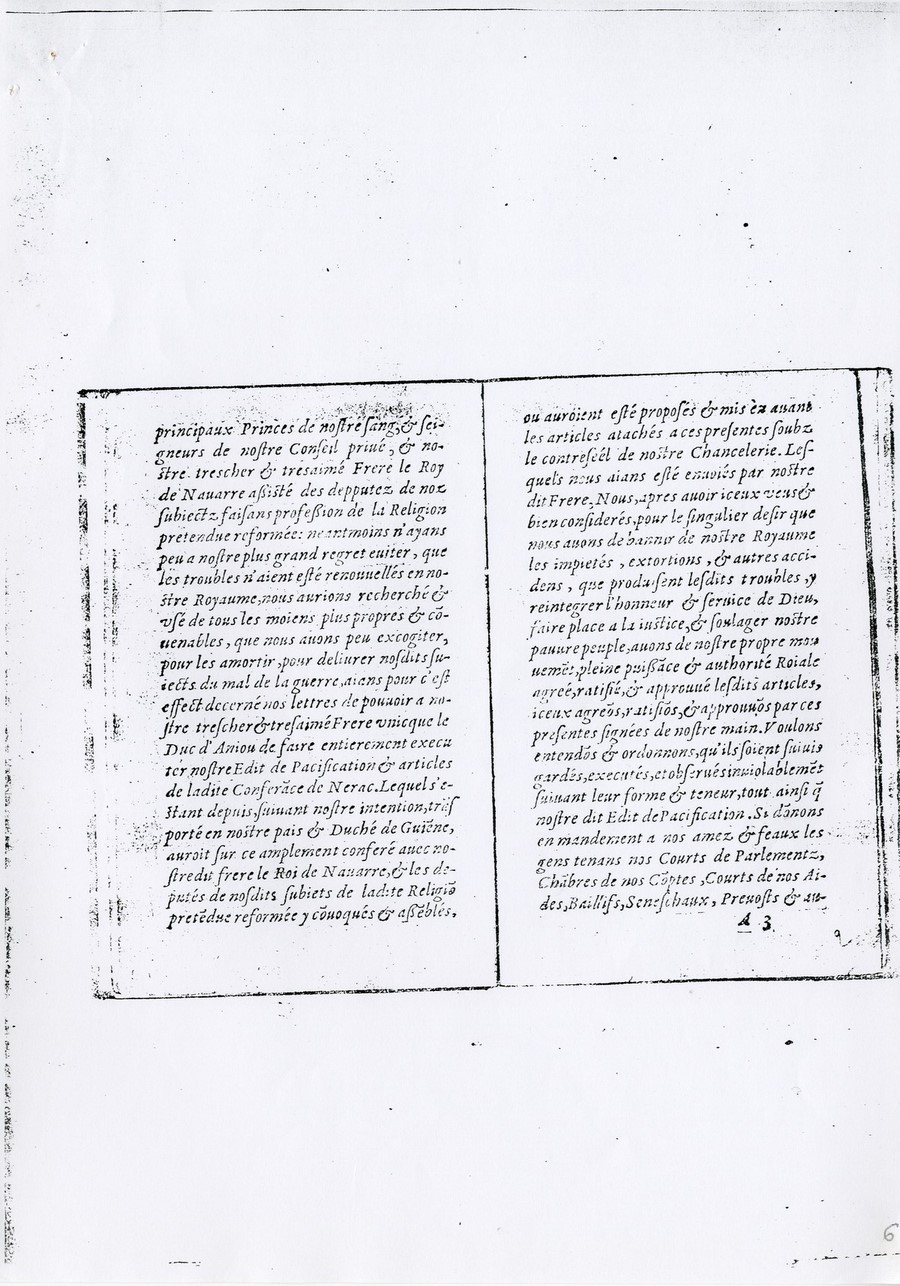 principaux Princes de nostre sang, & sei-
gneurs de nostre Conseil priué, & no-
stre trescher & tresaimé Frere le Roy
de Nauarre assisté des depputez de noz
subiectz faisans profession de la Religion
pretendue reformée: neantmoins n'ayans
peu a nostre plus grand regret euiter, que
les troubles n'aient esté renouuellés en no-
stre Royaume, nous aurions recherché &
vsé de tous les moiens plus propres & cō-
uenables, que nous auons peu excogiter,
pour les amortir, pour deliurer nosdits su-
iects du mal de la guerre, aians pour c'est
effect decerné nos lettres de pouuoir a no-
stre trescher & tresaimé Frere vnicque le
Duc d'Aniou de faire entierement execu
ter nostre Edit de Pacification & articles
de ladite Conferāce de Nerac. Lequel s'e-
stant depuis, suiuant nostre intention, trās
porté en nostre pais & Duché de Guiēne,
auroit sur ce amplement conferé auec no-
stredit frere le Roi de Nauarre, & les de-
putés de nosdits subiets de ladite Religiō
pretēdue reformée y cōuoqués & assēblés,
ou auroient esté proposés & mis ēz auant
les articles atachés a ces presentes soubz
le contreseél de nostre Chancelerie. Les-
quels nous aians esté enuoiés par nostre
dit Frere, Nous, apres auoir iceux veus &
bien considerés, pour le singulier desir que
nous auons de bannir de nostre Royaume
les impietés, extortions, & autres acci-
dens, que produisent lesdits troubles, y
reintegrer l'honneur & seruice de Dieu,
faire place a la iustice, & soulager nostre
pauure peuple, auons de nostre propre mou
uemēt, pleine puissāce & authorité Roiale
agreé, ratifié, & approuué lesdits articles,
iceux agreōs, ratifiōs, & approuuōs par ces
presentes signées de nostre main. Voulons
entendōs & ordonnons, qu'ils soient suiuis
gardés, executés, et obserués inuiolablemēt
suiuant leur forme & teneur, tout ainsi q̄
nostre dit Edit de Pacification. Si dānons
en mandement a nos amez & feaux les
gens tenans nos Courts de Parlementz,
Chābres de nos Cōptes, Courts de nos Ai-
des, Baillifs, Seneschaux, Preuosts & au-
A 3
6